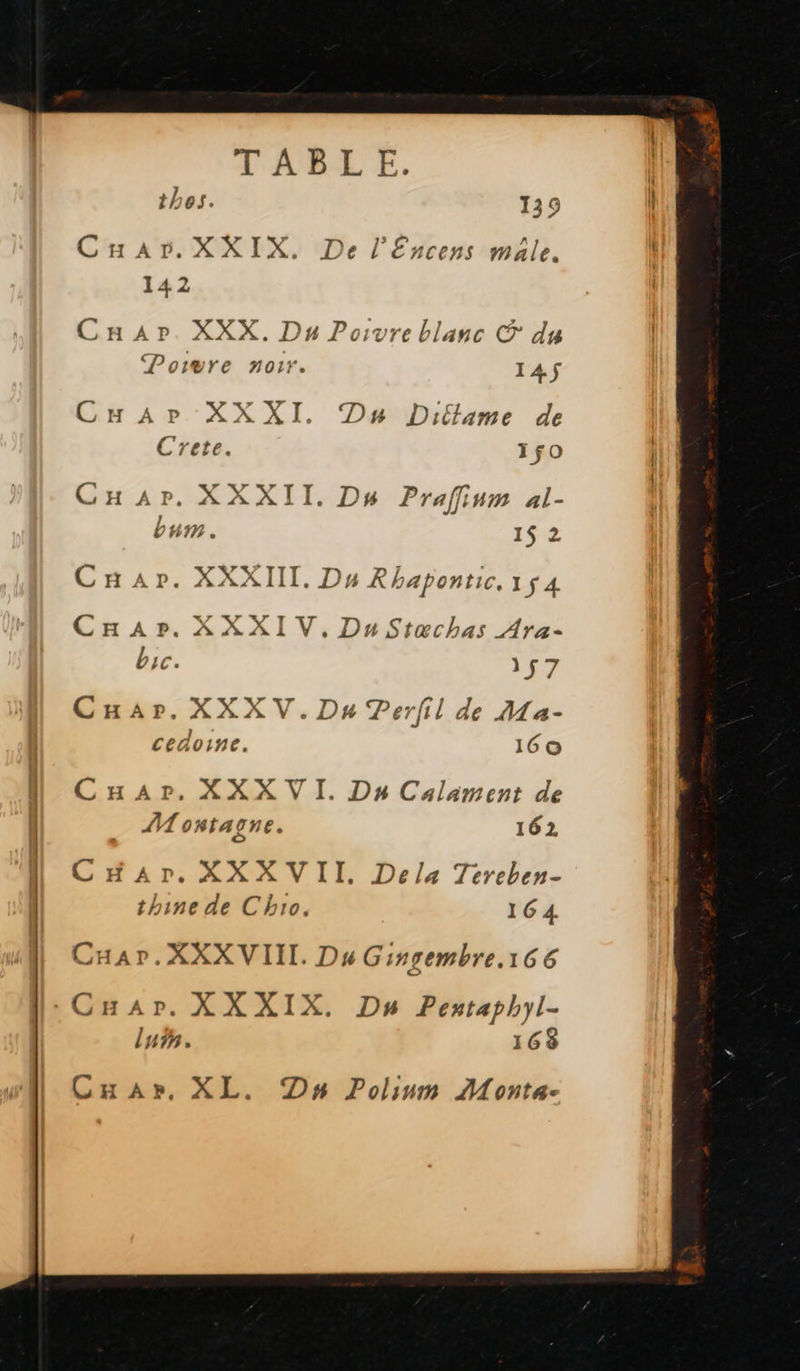 TABLE.
thos. 139
CHAP. XXIX. De l'Encens mâle.
142
CHAP XXX. Du Poivre blanc & du
Poivre noir. 145
CHAP XXXI. Du Dictame de
Crete. 150
CHAP. XXXII. Du Prassium al-
bum. 152
CHAP. XXXIII. Du Rhapontic. 154
CHAP. XXXIV. Du Stœchas Ara-
bic. 157
CHAP. XXXV. Du Persil de Ma-
cedoine. 160
CHAP. XXXVI. Du Calament de
Montagne. 162
CHAP. XXXVII. De la Tereben-
thine de Chio. 164
CHAP. XXXVIII. Du Gingembre. 166
CHAP. XXXIX. Du Pentaphyl-
lum. 168
CHAP. XL. Du Polium Monta-